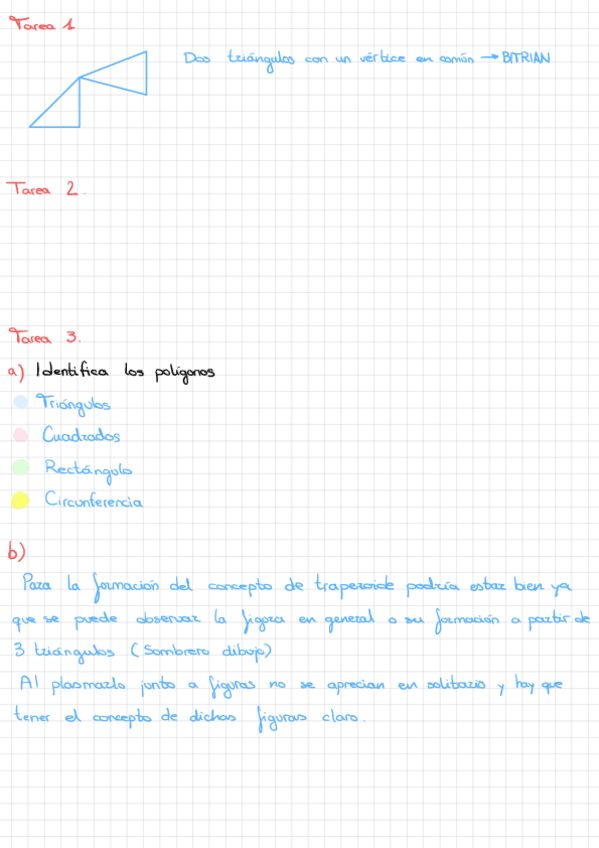 Tarea 1
Dos triángulos con un vértice en común → BITRIAN
Tarea 2.
Tarea 3.
a) Identifica los polígonos
Triángulos
Cuadrados
Rectángulo
Circunferencia
b)
Para la formación del concepto de trapezoide podría estar bien ya
que se puede observar la figura en general o su formación a partir de
3 triángulos (Sombrero dibujo)
Al plasmarlo junto a figuras no se aprecian en solitario y hay que
tener el concepto de dichas figuras claro.